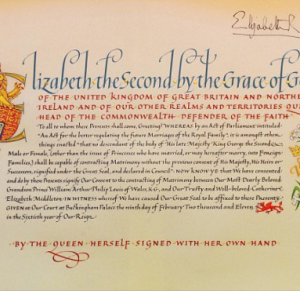 Elizabeth R
Elizabeth the Second by the Grace of G
OF THE UNITED KINGDOM OF GREAT BRITAIN AND NORTHE
IRELAND AND OF OUR OTHER REALMS AND TERRITORIES QU
HEAD OF THE COMMONWEALTH DEFENDER OF THE FAITH
To all to whom these Presents shall come, Greeting! WHEREAS by an Act of Parliament intituled
"An Act for the better regulating the future Marriages of the Royal Family", it is amongst other
things enacted "that no descendant of the body of His late Majesty King George the Second
Male or Female, (other than the issue of Princesses who have married, or may hereafter marry, into Foreign
Families,) shall be capable of contracting Matrimony without the previous consent of His Majesty, His Heirs or
Successors, signified under the Great Seal, and declared in Council": NOW KNOW YE that We have consented
and do by these Presents signify Our Consent to the contracting of Matrimony between Our Most Dearly Beloved
Grandson Prince William Arthur Philip Louis of Wales, K.G., and Our Trusty and Well-beloved Catherine
Elizabeth Middleton. IN WITNESS whereof We have caused Our Great Seal to be affixed to these Presents
GIVEN at Our Court at Buckingham Palace the ninth day of February Two thousand and Eleven
in the Sixtieth year of Our Reign.
BY THE QUEEN HERSELF SIGNED WITH HER OWN HAND